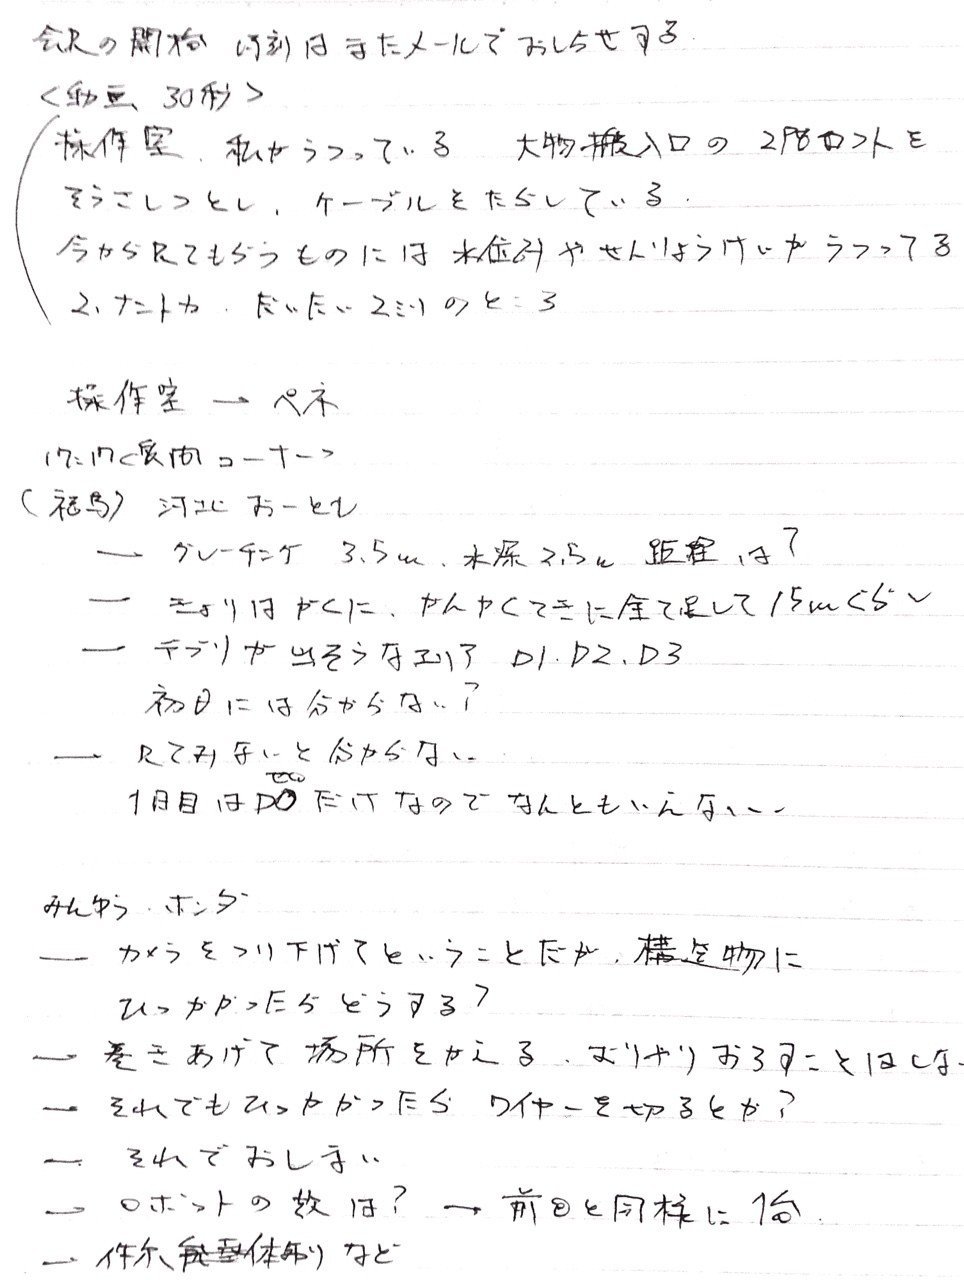 会見の開始 時刻はまたメールでおしらせする.
<動画、30秒>
操作室、私がうつっている 大物搬入口の2階ロボットを
そうさしつとし、ケーブルをたらしている.
今から見てもらうものには水位計やせんりょうけいがうつってる
2、ナントカ. だいたい2ミリのところ
操作室 → ペネ
17:17<質問コーナー>
(福島) 河北 おーとも
— グレーチング 3.5m、水深2.5m 距離は?
— きょりはがくに、かんかくてきに全て足して15mくらい
— デブリが出そうなエリア D1.D2.D3
初日には分からない?
— 見てみないと分からない
ゼロ
1日目はD0だけなのでなんともいえない
みんゆう.ホンダ
— カメラをつり下げてということだが、構造物に
ひっかかったらどうする?
— 巻きあげて場所をかえる、むりやりおろすことはしな
— それでもひっかかったら ワイヤーを切るとか?
— それでおしまい
— ロボットの数は? → 前回と同様に1台.
— など